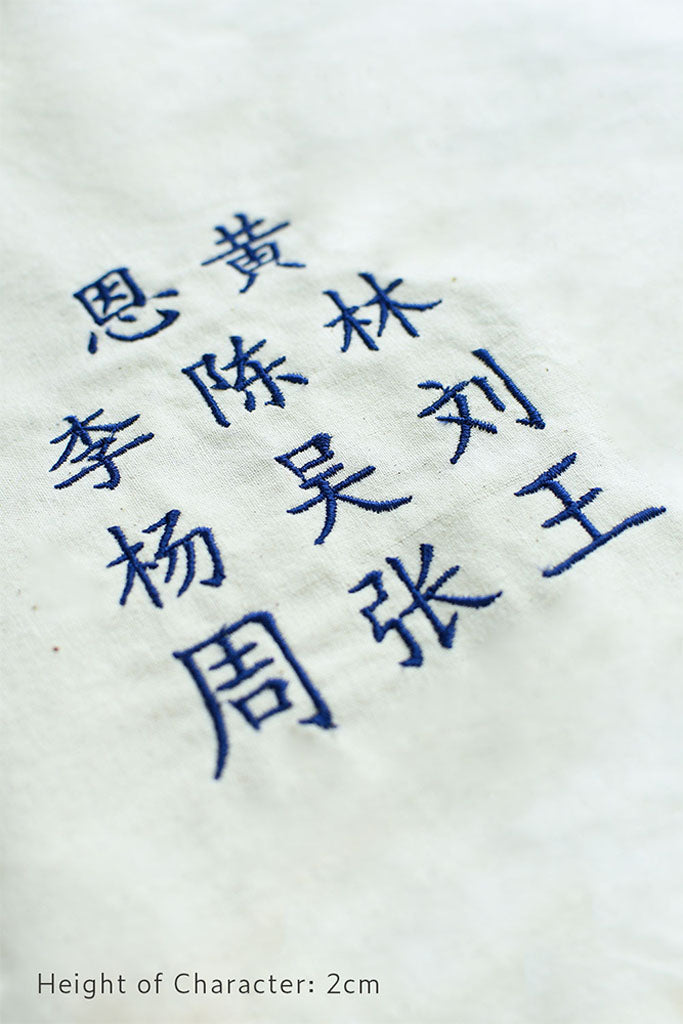 恩 黄
李 陈 林
杨 吴 刘
周 张 王
Height of Character: 2cm